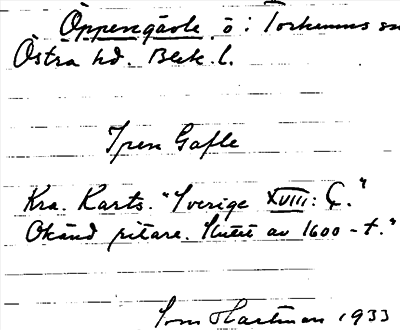 Öppengåvle ö: Torhamns sn
Östra hd. Blek. l.
Ypen Gafle
Kra. Karts. "Sverige XVIII: Ç."
Okänd ritare. Slutet av 1600-t."
Hartman 1933